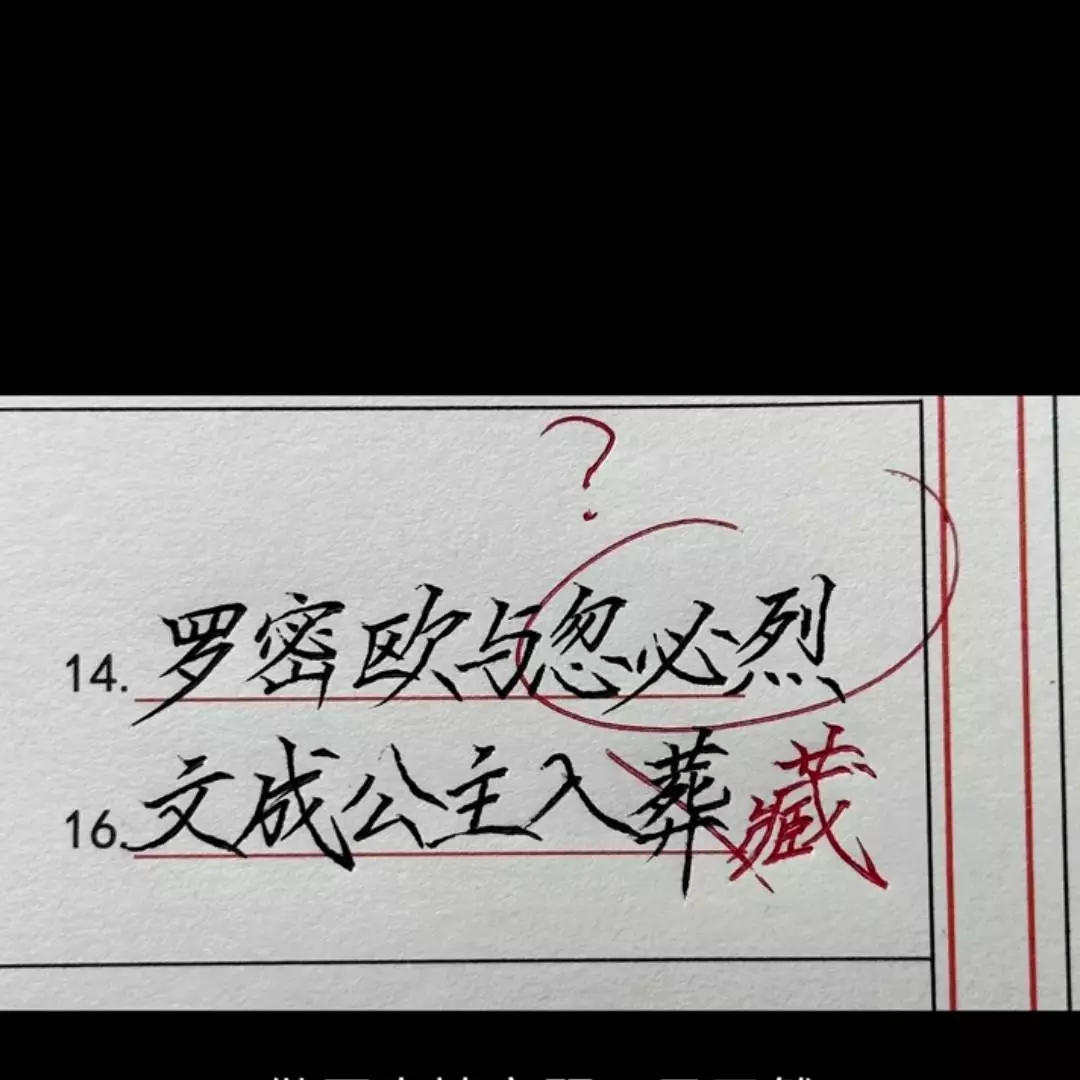 ?
14. 罗密欧与忽必烈
16. 文成公主入葬藏